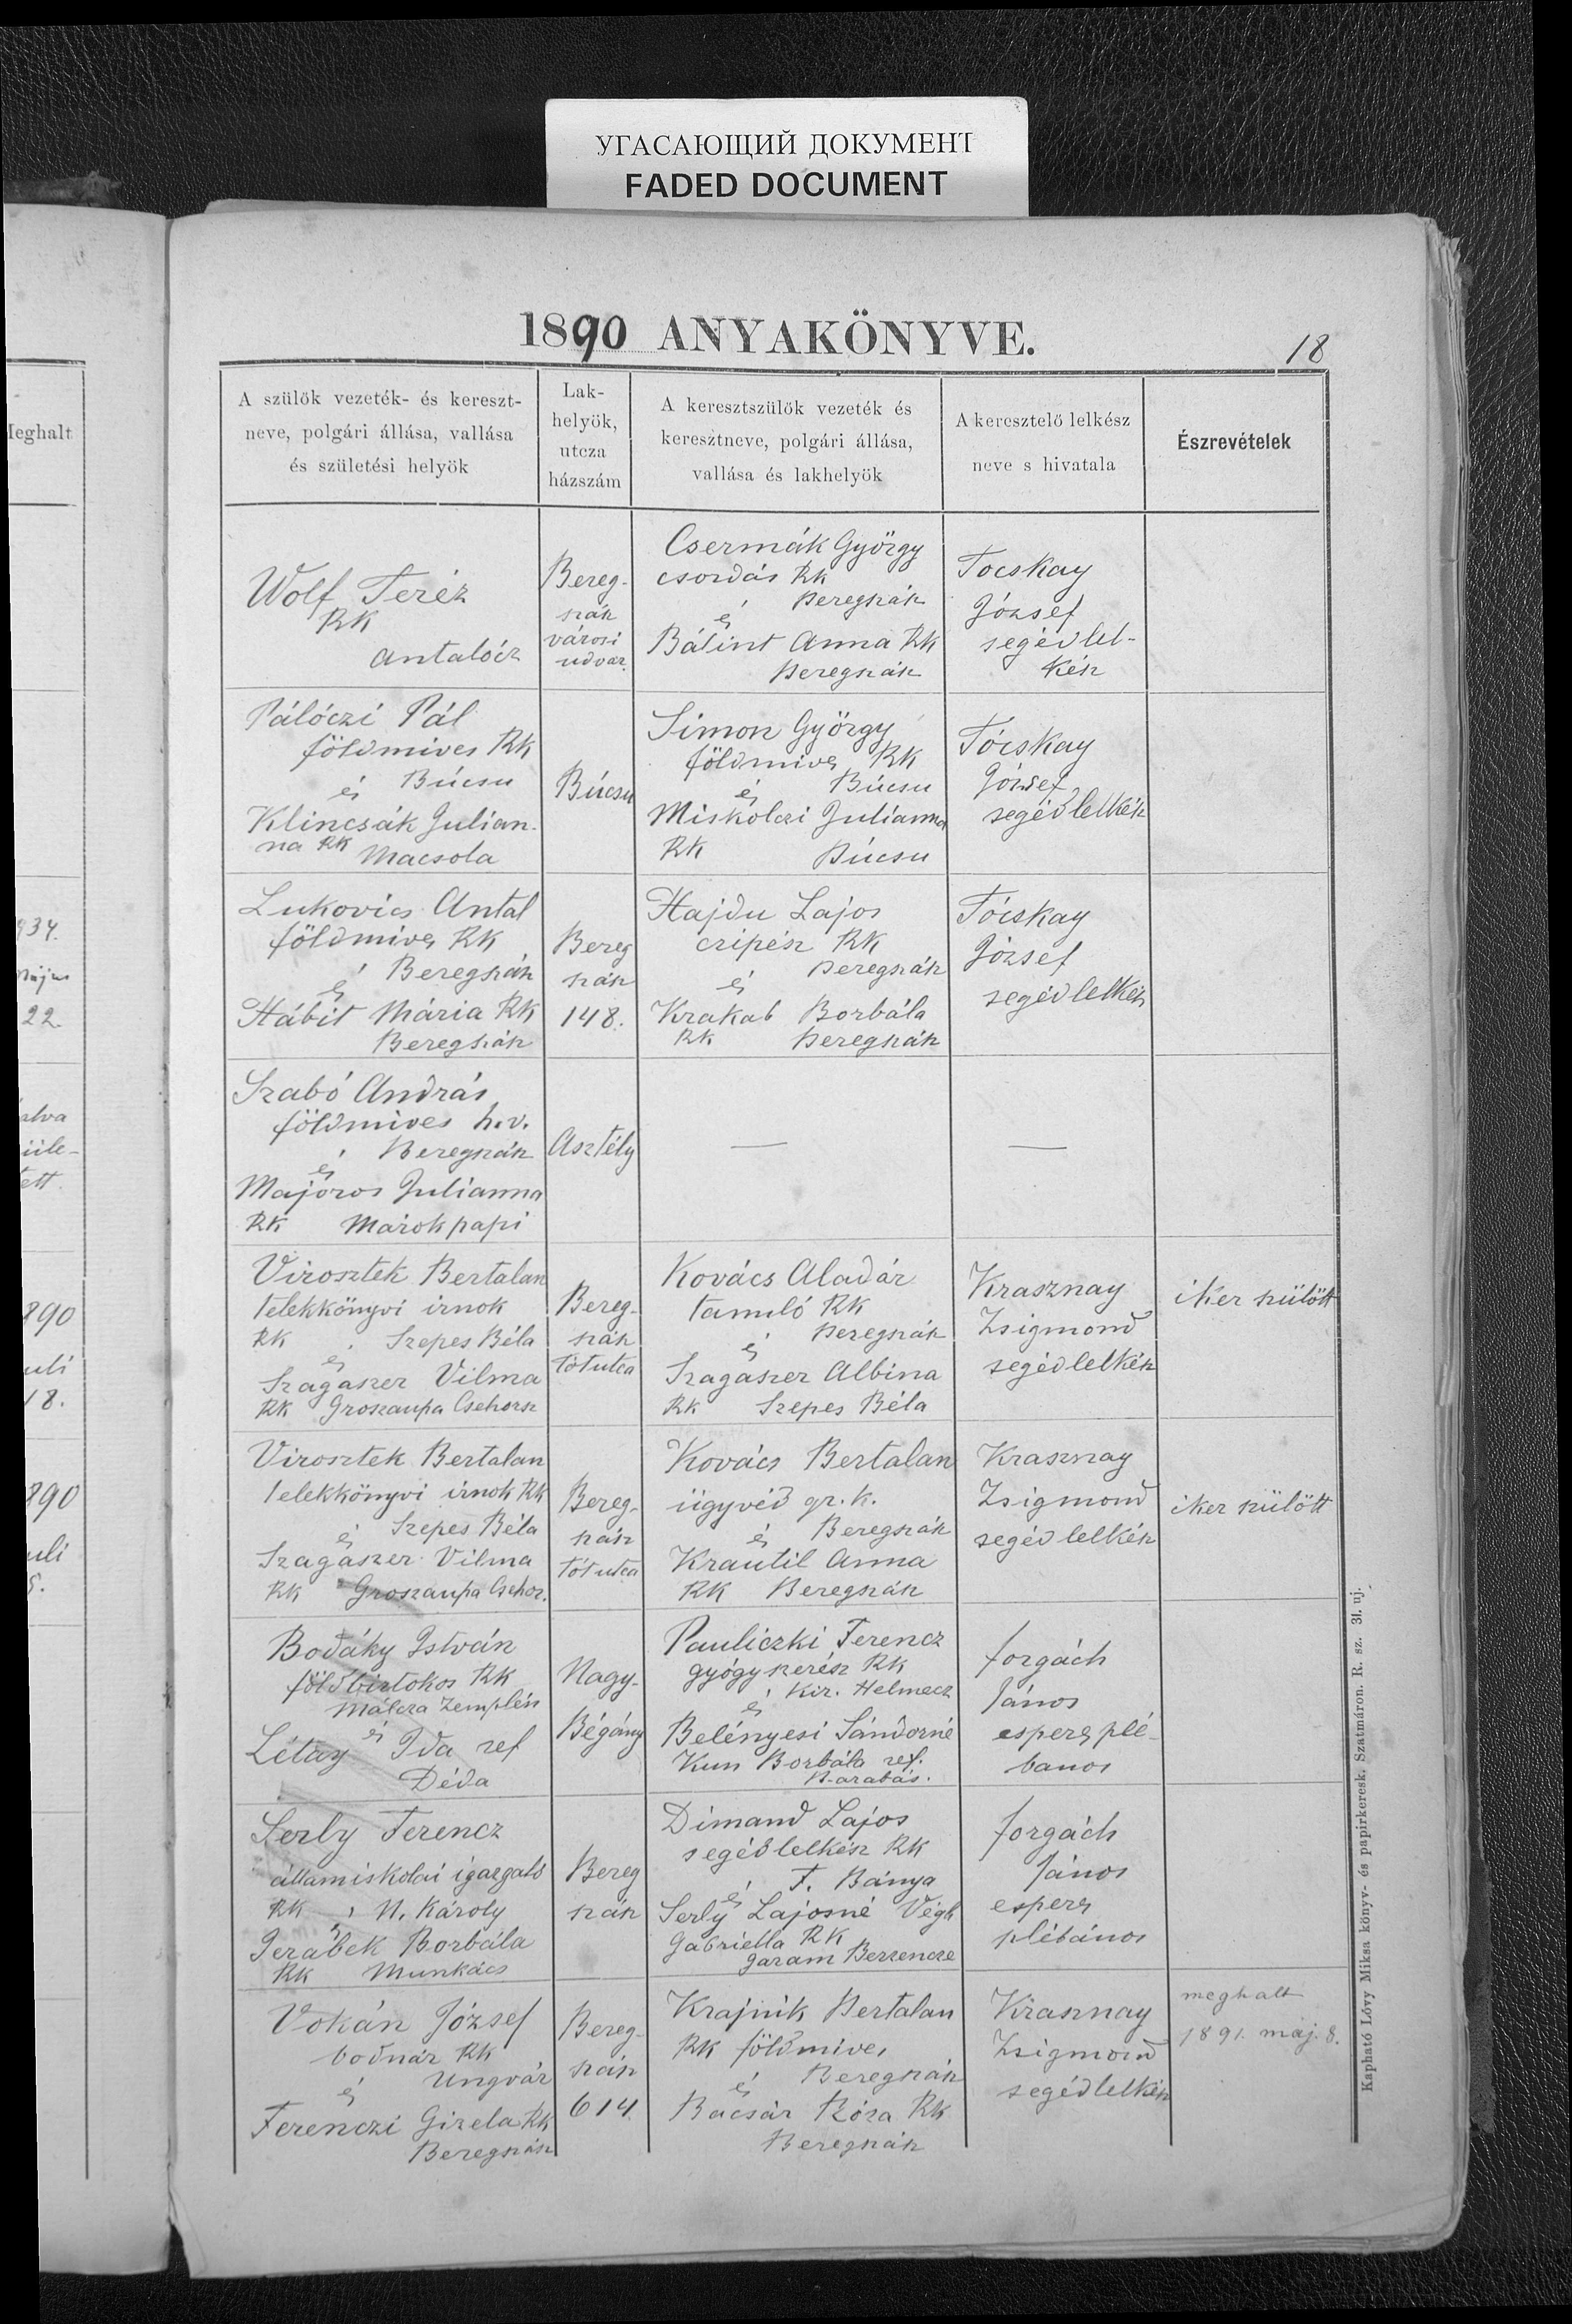 УГАСАЮЩИЙ ДОКУМЕНТ
FADED DOCUMENT
1890 ANYAKÖNYVE.
18
Meghalt
A szülők vezeték- és kereszt-
neve, polgári állása, vallása
és születési helyök
Lak-
helyök,
utcza
házszám
A keresztszülők vezeték és
keresztneve, polgári állása,
vallása és lakhelyök
A keresztelő lelkész
neve s hivatala
Észrevételek
Wolf Teréz
RK
Antalócz
Bereg-
szász
városi
udvar.
Csermák György
csordás RK
Beregszász
és
Bálint Anna RK
Beregszász
Tocskay
József
segédlel-
kész
Pálóczi Pál
földmives RK
és Búcsu
Klincsák Julian-
na RK Macsola
Búcsu
Simon György
földmives RK
és Búcsu
Miskolczi Julianna
RK Búcsu
Tócskay
József
segédlelkész
Lukovics Antal
földmives RK
és Beregszász
Hábit Mária RK
Beregszász
Bereg
szász
148.
Hajdu Lajos
czipész RK
és Beregszász
Krakab Borbála
RK Beregszász
Tócskay
József
segédlelkész
934.
22.
Szabó András
földmives h.v.
és Beregszász
Majoros Julianna
RK Márokpapi
Asztély
—
—
Virosztek Bertalan
telekkönyvi irnok
RK és Szepes Béla
Szagaszer Vilma
RK Groszaupa Csehorsz
Bereg-
szász
tótutca
Kovács Aladár
tanuló RK
és Beregszász
Szagaszer Albina
RK Szepes Béla
Krasznay
Zsigmond
segédlelkész
iker szülött
890
18.
Virosztek Bertalan
telekkönyvi irnok RK
és Szepes Béla
Szagaszer Vilma
RK Groszaupa Csehor.
Bereg-
szász
tótutca
Kovács Bertalan
ügyvéd gr. k.
és Beregszász
Krautil Anna
RK Beregszász
Krasznay
Zsigmond
segédlelkész
iker szülött
890
Bodáky István
földbirtokos RK
Málcza Zemplén
és
Létay Ida ref
Déda
Nagy-
Bégány
Pauliczki Ferencz
gyógyszerész RK
és Kir. Helmecz
Belényesi Sándorné
Kun Borbála ref.
Barabás.
Forgách
János
esperes plé-
bános
Serly Ferencz
államiskolai igazgató
RK és N. Károly
Jerábek Borbála
RK Munkács
Bereg
szász
Dimand Lajos
segédlelkész RK
és F. Bánya
Serly Lajosné Végh
Gabriella RK
Garam Berzencze
Forgách
János
esperes
plébános
Vokán József
bodnár RK
és Ungvár
Ferenczi Gizela RK
Beregszász
Bereg-
szász
614.
Krajnik Bertalan
RK földmives
és Beregszász
Bacsár Róza RK
Beregszász
Krasznay
Zsigmond
segédlelkész
meghalt
1891. máj. 8.
Kapható Lővy Miksa könyv- és papirkeresk. Szatmáron. R. sz. 31. uj.